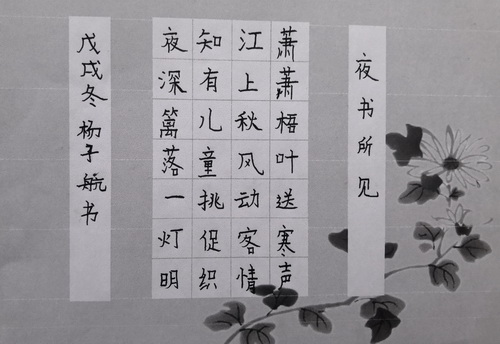 夜书所见
萧萧梧叶送寒声
江上秋风动客情
知有儿童挑促织
夜深篱落一灯明
戊戌冬杨子航书